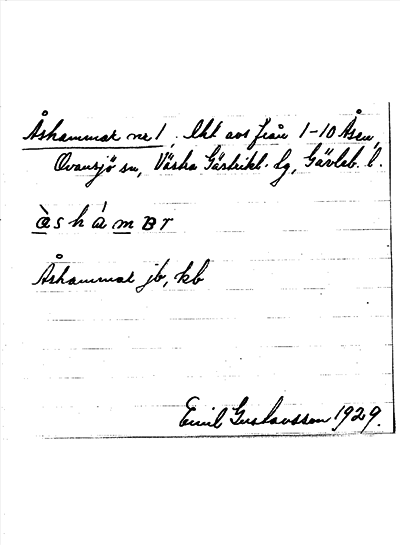 Åshammar nr 1, lht avs från 1-10 Åsen,
Ovansjö sn, Västra Gästrikl. dg, Gävleb. l.
àshámar
Åshammar jb, kb
Emil Gustavsson 1929.